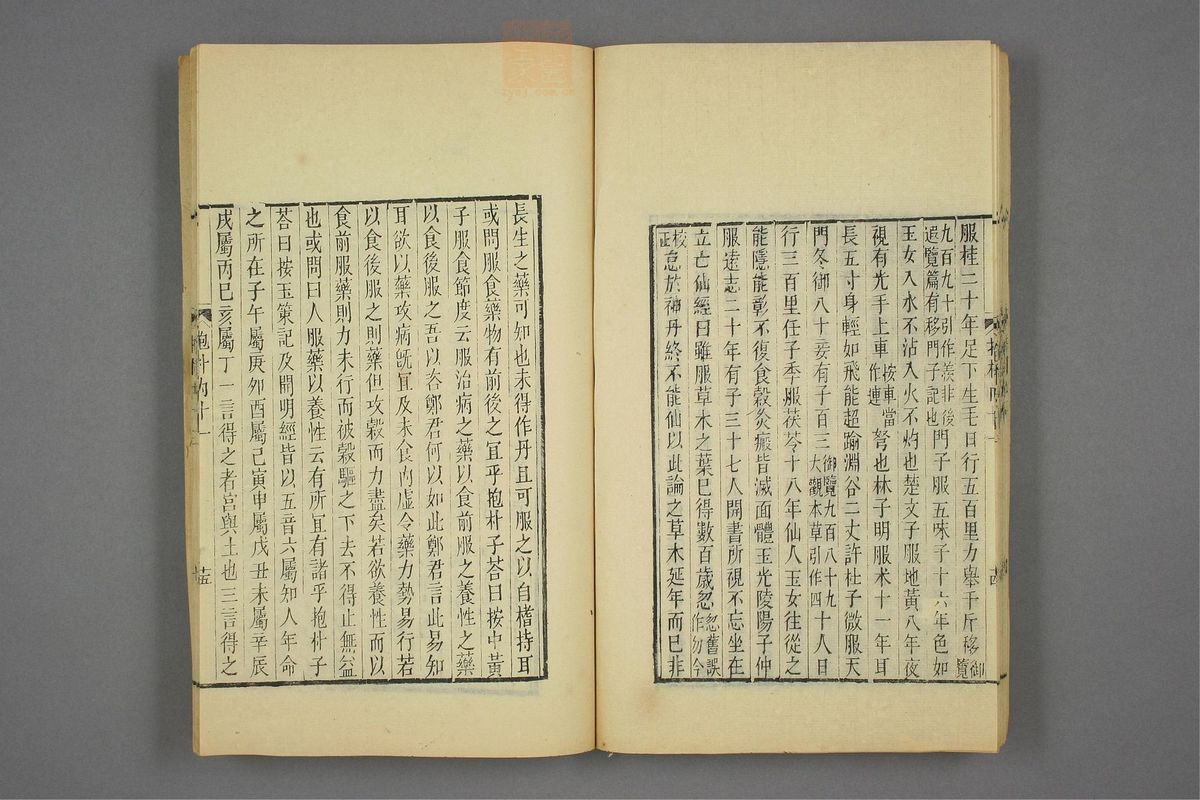 服桂二十年足下生毛日行五百里力舉千斤移御覽
九百九十引作羨非後遐覽篇有移門子記也門子服五味子十六年色如
玉女入水不沾入火不灼也楚文子服地黃八年夜
視有光手上車按車當作連弩也林子明服朮十一年耳
長五寸身輕如飛能超踰淵谷二丈許杜子微服天
門冬御八十妾有子百三御覽九百八十九大觀本草引作四十人日
行三百里任子季服茯苓十八年仙人玉女往從之
能隱能彰不復食穀灸瘢皆滅面體玉光陵陽子仲
服遠志二十年有子三十七人開書所視不忘坐在
立亡仙經曰雖服草木之葉已得數百歲忽忽舊誤作勿今
校正怠於神丹終不能仙以此論之草木延年而已非
長生之藥可知也未得作丹且可服之以自榰持耳
或問服食藥物有前後之宜乎抱朴子荅曰按中黃
子服食節度云服治病之藥以食前服之養性之藥
以食後服之吾以咨鄭君何以如此鄭君言此易知
耳欲以藥攻病旣宜及未食內虛令藥力勢易行若
以食後服之則藥但攻穀而力盡矣若欲養性而以
食前服藥則力未行而被穀驅之下去不得止無益
也或問曰人服藥以養性云有所宜有諸乎抱朴子
荅曰按玉策記及開明經皆以五音六屬知人年命
之所在子午屬庚夘酉屬己寅申屬戊丑未屬辛辰
戌屬丙巳亥屬丁一言得之者宮與土也三言得之
抱朴內十一